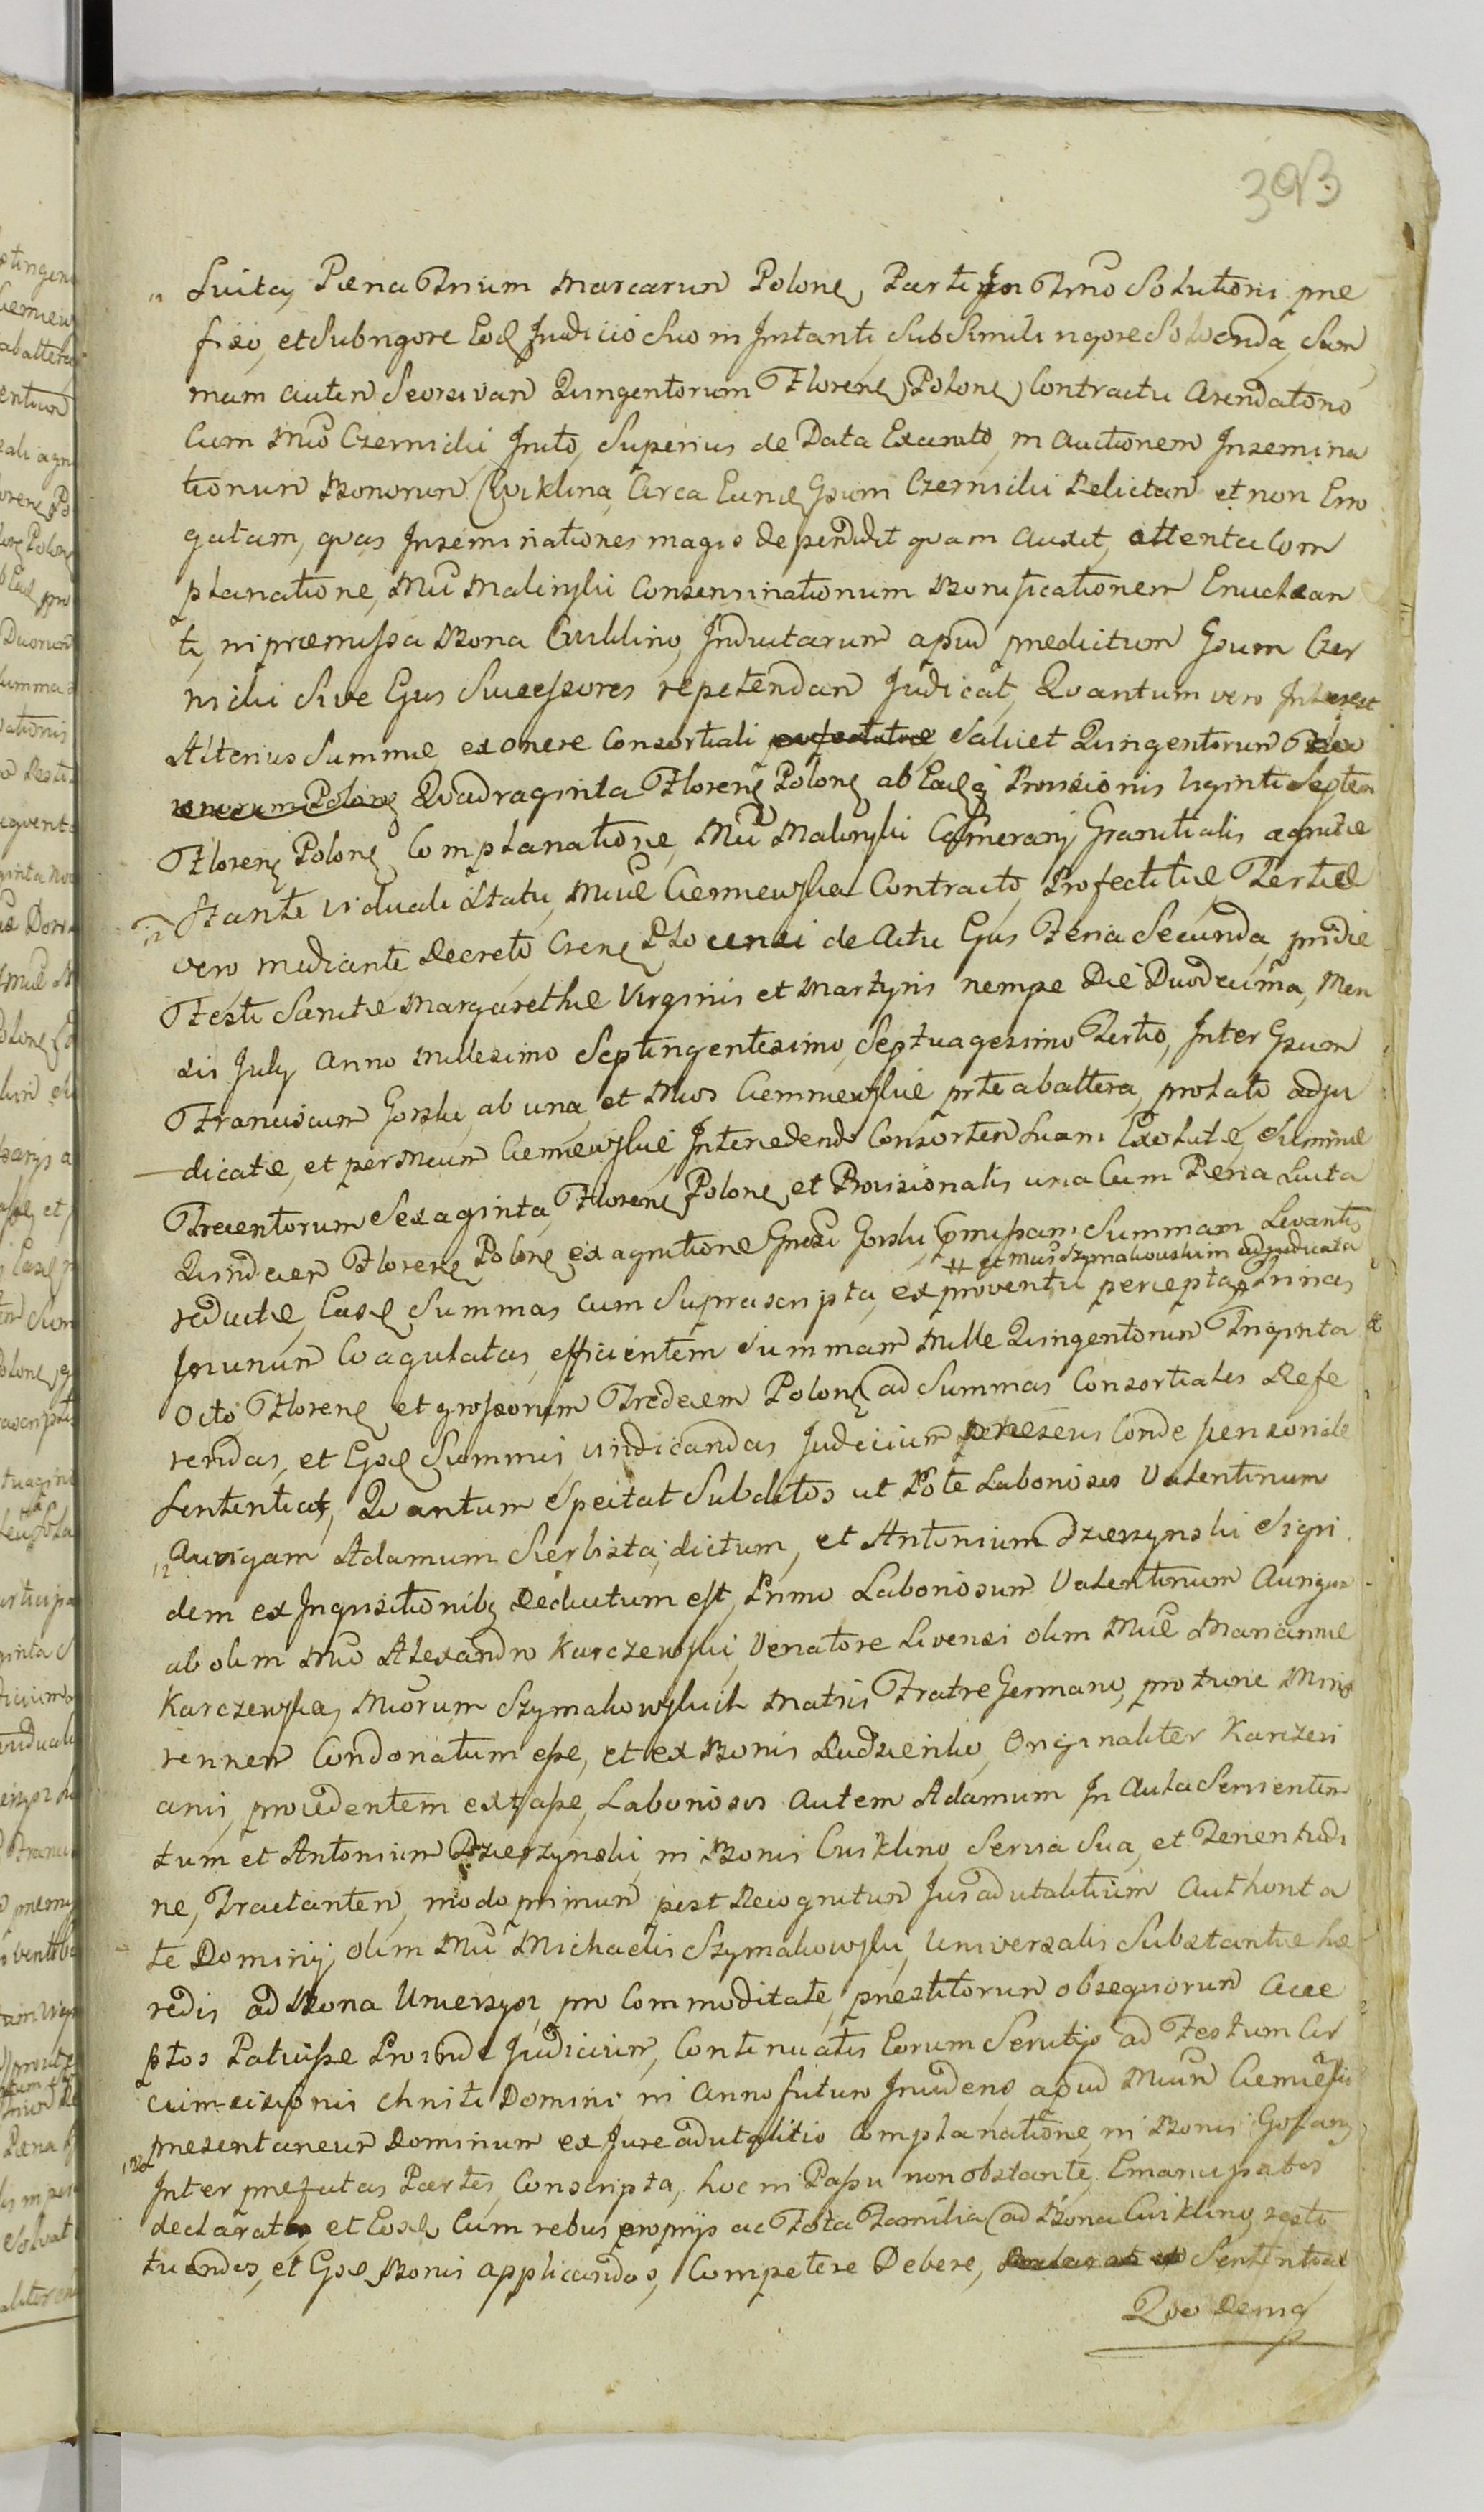 393
Luita, Pæna Trium Marcarum Polone, Parti In Trno Solutioni pre
fixo, et Sub rigore Eod Judicio Suo in Instanti, Sub Simili rigore Solvenda, Sum
mam autem Seorsivam Quingentorum Floren Polone Contractu Arendatorio
Cum Mco Czernicki Inito, Superius de Data Exarato, in auctionem Insemina
tionum Bonorum Cwiklina Circa Eund Gsum Czernicki Relictam et non Erro
gatam, quas Inseminationes magis dependidit quam auxit, attenta Com
planatione, Mci Malinski Conseminationum Bonificationem Enuclean
ti, in præmissa Bona Cwiklino, Inductarum apud predictum Gsum Czer
nicki Sive Ejus Successores repetendam Judicat, Quantum vero Interest
Alterius Summæ ex onere Consortiali Scilicet Quingentorum
Quadraginta Floren Polone ab Eadq Provisionis Viginti Septem
Floren Polone Complanatione, Mci Malinski Camerarij Granitialis agnitæ
Stante viduali Statu, Mcæ Ciemniewska Contracto, Profectitiæ Tertiæ
vero mediante Decreto Crens Plocensi de Actu Ejus Feria Secunda, pridie
Festi Sanctæ Margarethæ Virginis et Martyris nempe Die Duodecima, Men
sis July Anno Millesimo Septingentesimo, Septuagesimo Tertio, Inter Gsum
Franciscum Gorski, ab una, et Mcos Ciemniewskie prte ab altera, prolato adju
dicatæ, et per Mcum Ciemniewski Intercedendo Consortem Suam Exolutæ, Summæ
Trecentorum Sexaginta, Floren Polone, et Provisionalis una Cum Pæna Luita
Quindecem Floren Polone ex agnitione Gnosi Gorski Præmissam Summam Levantis
# et Mcum Szymakowskim adjudicata
reductæ, Easd Summas cum Suprascripta, ex proventu percepta # Trinas
In unum Coagulatas, efficientem Summam Mille Quingentorum Triginta
Octo Floren et grossorum Tredecem Polone ad Summas Consortiales Refe
rendas, et Gsd Summis, vindicandas Judicium presens Condepensoriale
Sententiat, Quantum Spectat Subditos ut Pote Laboriosos Valentinum
Aurigam Adamum Sierbista, dictum, et Antonium Dzierzynski Siqui
dem ex Inquisitionibq Deductum est, Primo Laboriosum Valentinum Aurigam
ab olim Mco Alexandro Karczewski, Venatore Livensi olim Mcæ Mariannæ
Karczewska, Mcorum Szymakowskich Matris Fratre Germano, pro tunc Mino
rennem Condonatum esse, et ex Bonis Rudzienko, Originaliter Karczevi
anis, procedentem extasse, Laboriosos Autem Adamum In Aula Servientem
tum et Antonium Dzierzynski in Bonis Cwiklino, Servia Sua, et Tenentudi
ne, Tractantem, modo primum post Recognitum Jus advitalitium Authorita
te Dominij, olim Mci Michaelis Szymakowski, Universalis Substantiæ hæ
redis ad Bona Uniesz pro Commoditate, prestitorum obsequiorum Acce
ptos Patuisse Proinde Judicium, Continuatis Eorum Servitijs ad Festum Cir
cumcisionis Christi Domini in Anno futuro Inciden, apud Mcum Ciemniewski
presentaneum Dominum ex Jure advitalitio Complanatione, in Bonis Goslany
Inter prefatas Partes, Conscripta, hoc in Passu non obstante, Emancipatos
declaratos, et Eosd Cum rebus proprijs ac Tota Familia ad Bona Cwiklino, resti
tuendos, et Gsd Bonis applicandos, Competere Debere, Sententiat
Quo Demq